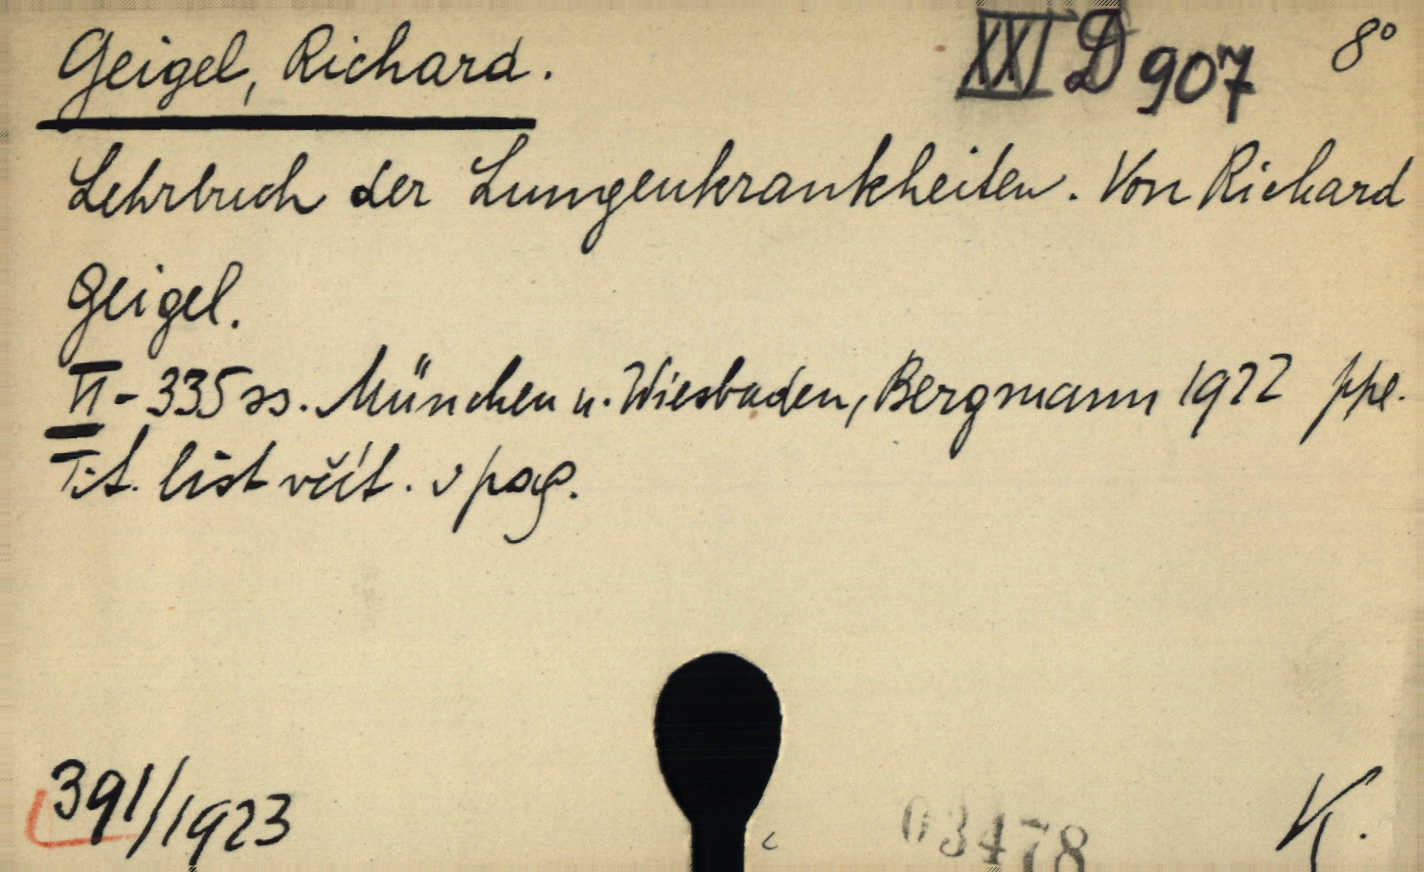 Geigel, Richard.
XXI D 907 8°
Lehrbuch der Lungenkrankheiten. Von Richard
Geigel.
VI - 335 ss. München u. Wiesbaden, Bergmann 1922 ppe.
Tit. list včít. v pag.
391/1923
03478
K.